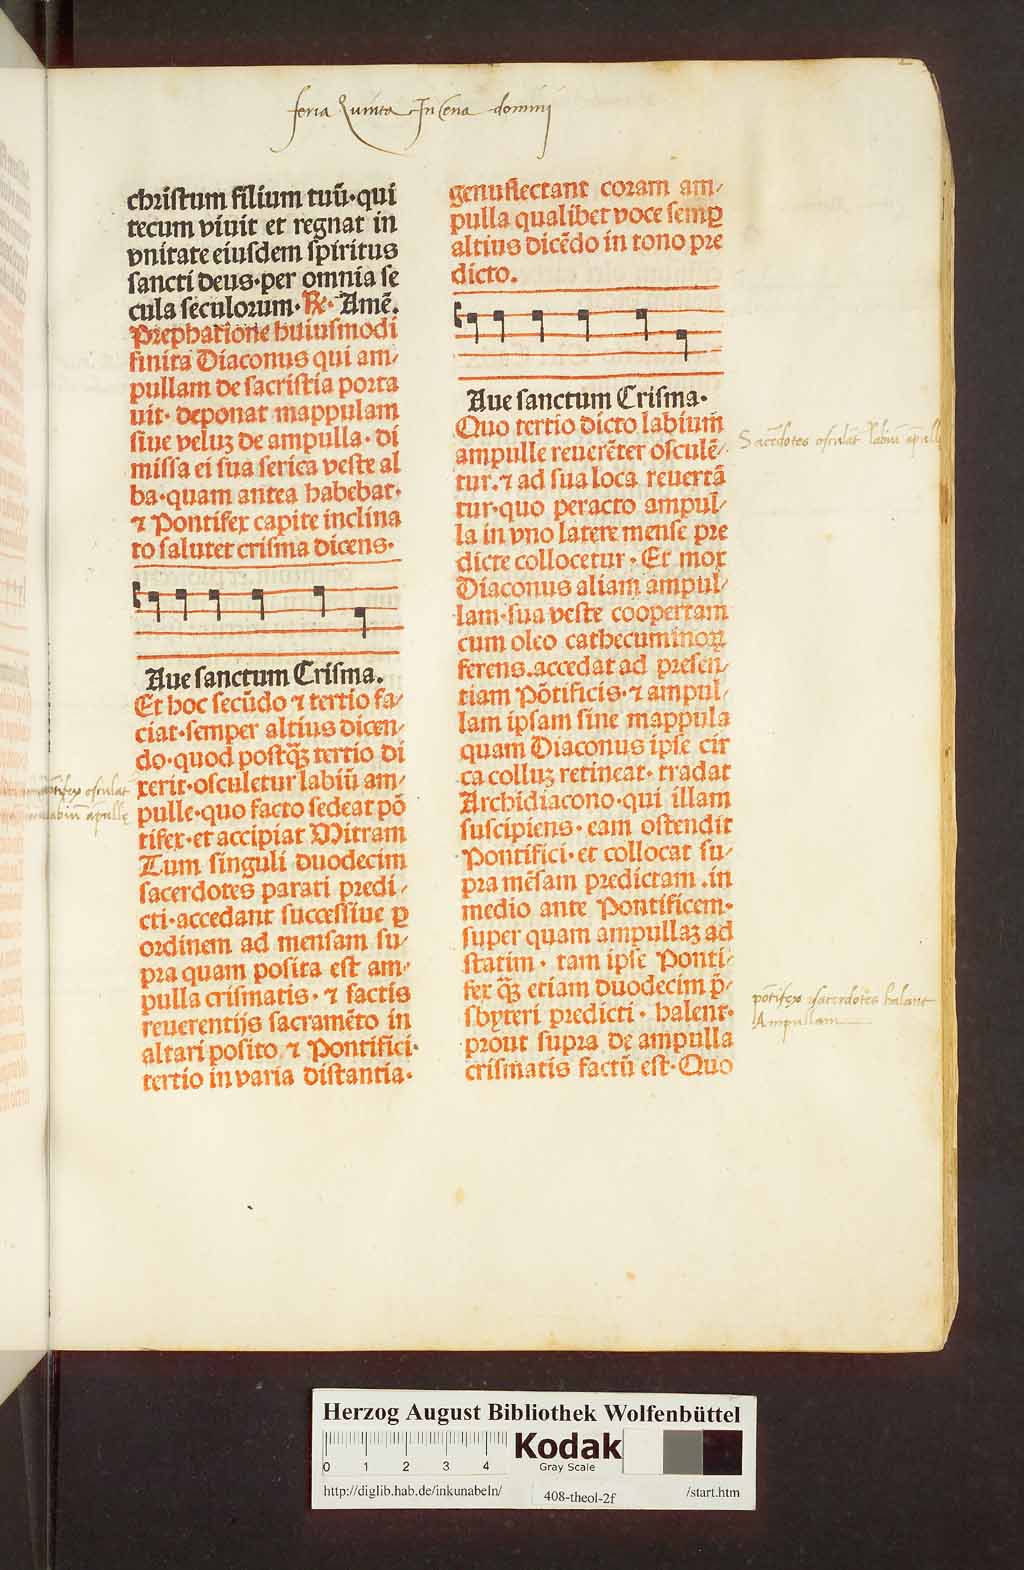 feria Quinta In Cena dominij
christum filium tuū·qui
tecum viuit et regnat in
vnitate eiusdem spiritus
sancti deus·per omnia se
cula seculorum·℞·Amē.
Prephatione huiusmodi
finita Diaconus qui am⸗
pullam de sacristia porta
uit·deponat mappulam
siue veluꝫ de ampulla·di
missa ei sua serica veste al
ba·quam antea habebat·
⁊ Pontifex capite inclina
to salutet crisma dicens·
Aue sanctum Crisma.
Et hoc secūdo ⁊ tertio fa⸗
ciat·semper altius dicen⸗
do·quod postqꝫ̄ tertio di
xerit·osculetur labiū am⸗
pulle·quo facto sedeat pō
tifex·et accipiat Mitram
Tum singuli duodecim
sacerdotes parati predi⸗
cti·accedant successiue ꝑ
ordinem ad mensam su⸗
pra quam posita est am⸗
pulla crismatis·⁊ factis
reuerentijs sacramēto in
altari posito ⁊ Pontifici·
tertio in varia distantia·
pōtifex osculat
labiū āpullę
genuflectant coram am⸗
pulla qualibet voce semꝑ
altius dicēdo in tono pre
dicto.
Aue sanctum Crisma·
Quo tertio dicto labium
ampulle reuerēter osculē⸗
tur.⁊ ad sua loca reuertā
tur·quo peracto ampul⸗
la in vno latere mense pre
dicte collocetur·Et mox
Diaconus aliam ampul⸗
lam·sua veste coopertam
cum oleo cathecuminoꝝ
ferens.accedat ad presen⸗
tiam Pōtificis·⁊ ampul⸗
lam ipsam sine mappula
quam Diaconus ipse cir
ca colluꝫ retineat·tradat
Archidiacono·qui illam
suscipiens·eam ostendit
Pontifici·et collocat su⸗
pra mēsam predictam.in
medio ante Pontificem·
super quam ampullaꝫ ad
statim·tam ipse Ponti⸗
fex qꝫ̄ etiam duodecim p̄⸗
sbyteri predicti·halent·
prout supra de ampulla
crismatis factū est·Quo
Sacēdotes osculāt labiū āpullę
pōtifex sacerdotes halant
Ampullam
Herzog August Bibliothek Wolfenbüttel
0 1 2 3 4
Kodak
Gray Scale
http://diglib.hab.de/inkunabeln/
408-theol-2f
/start.htm